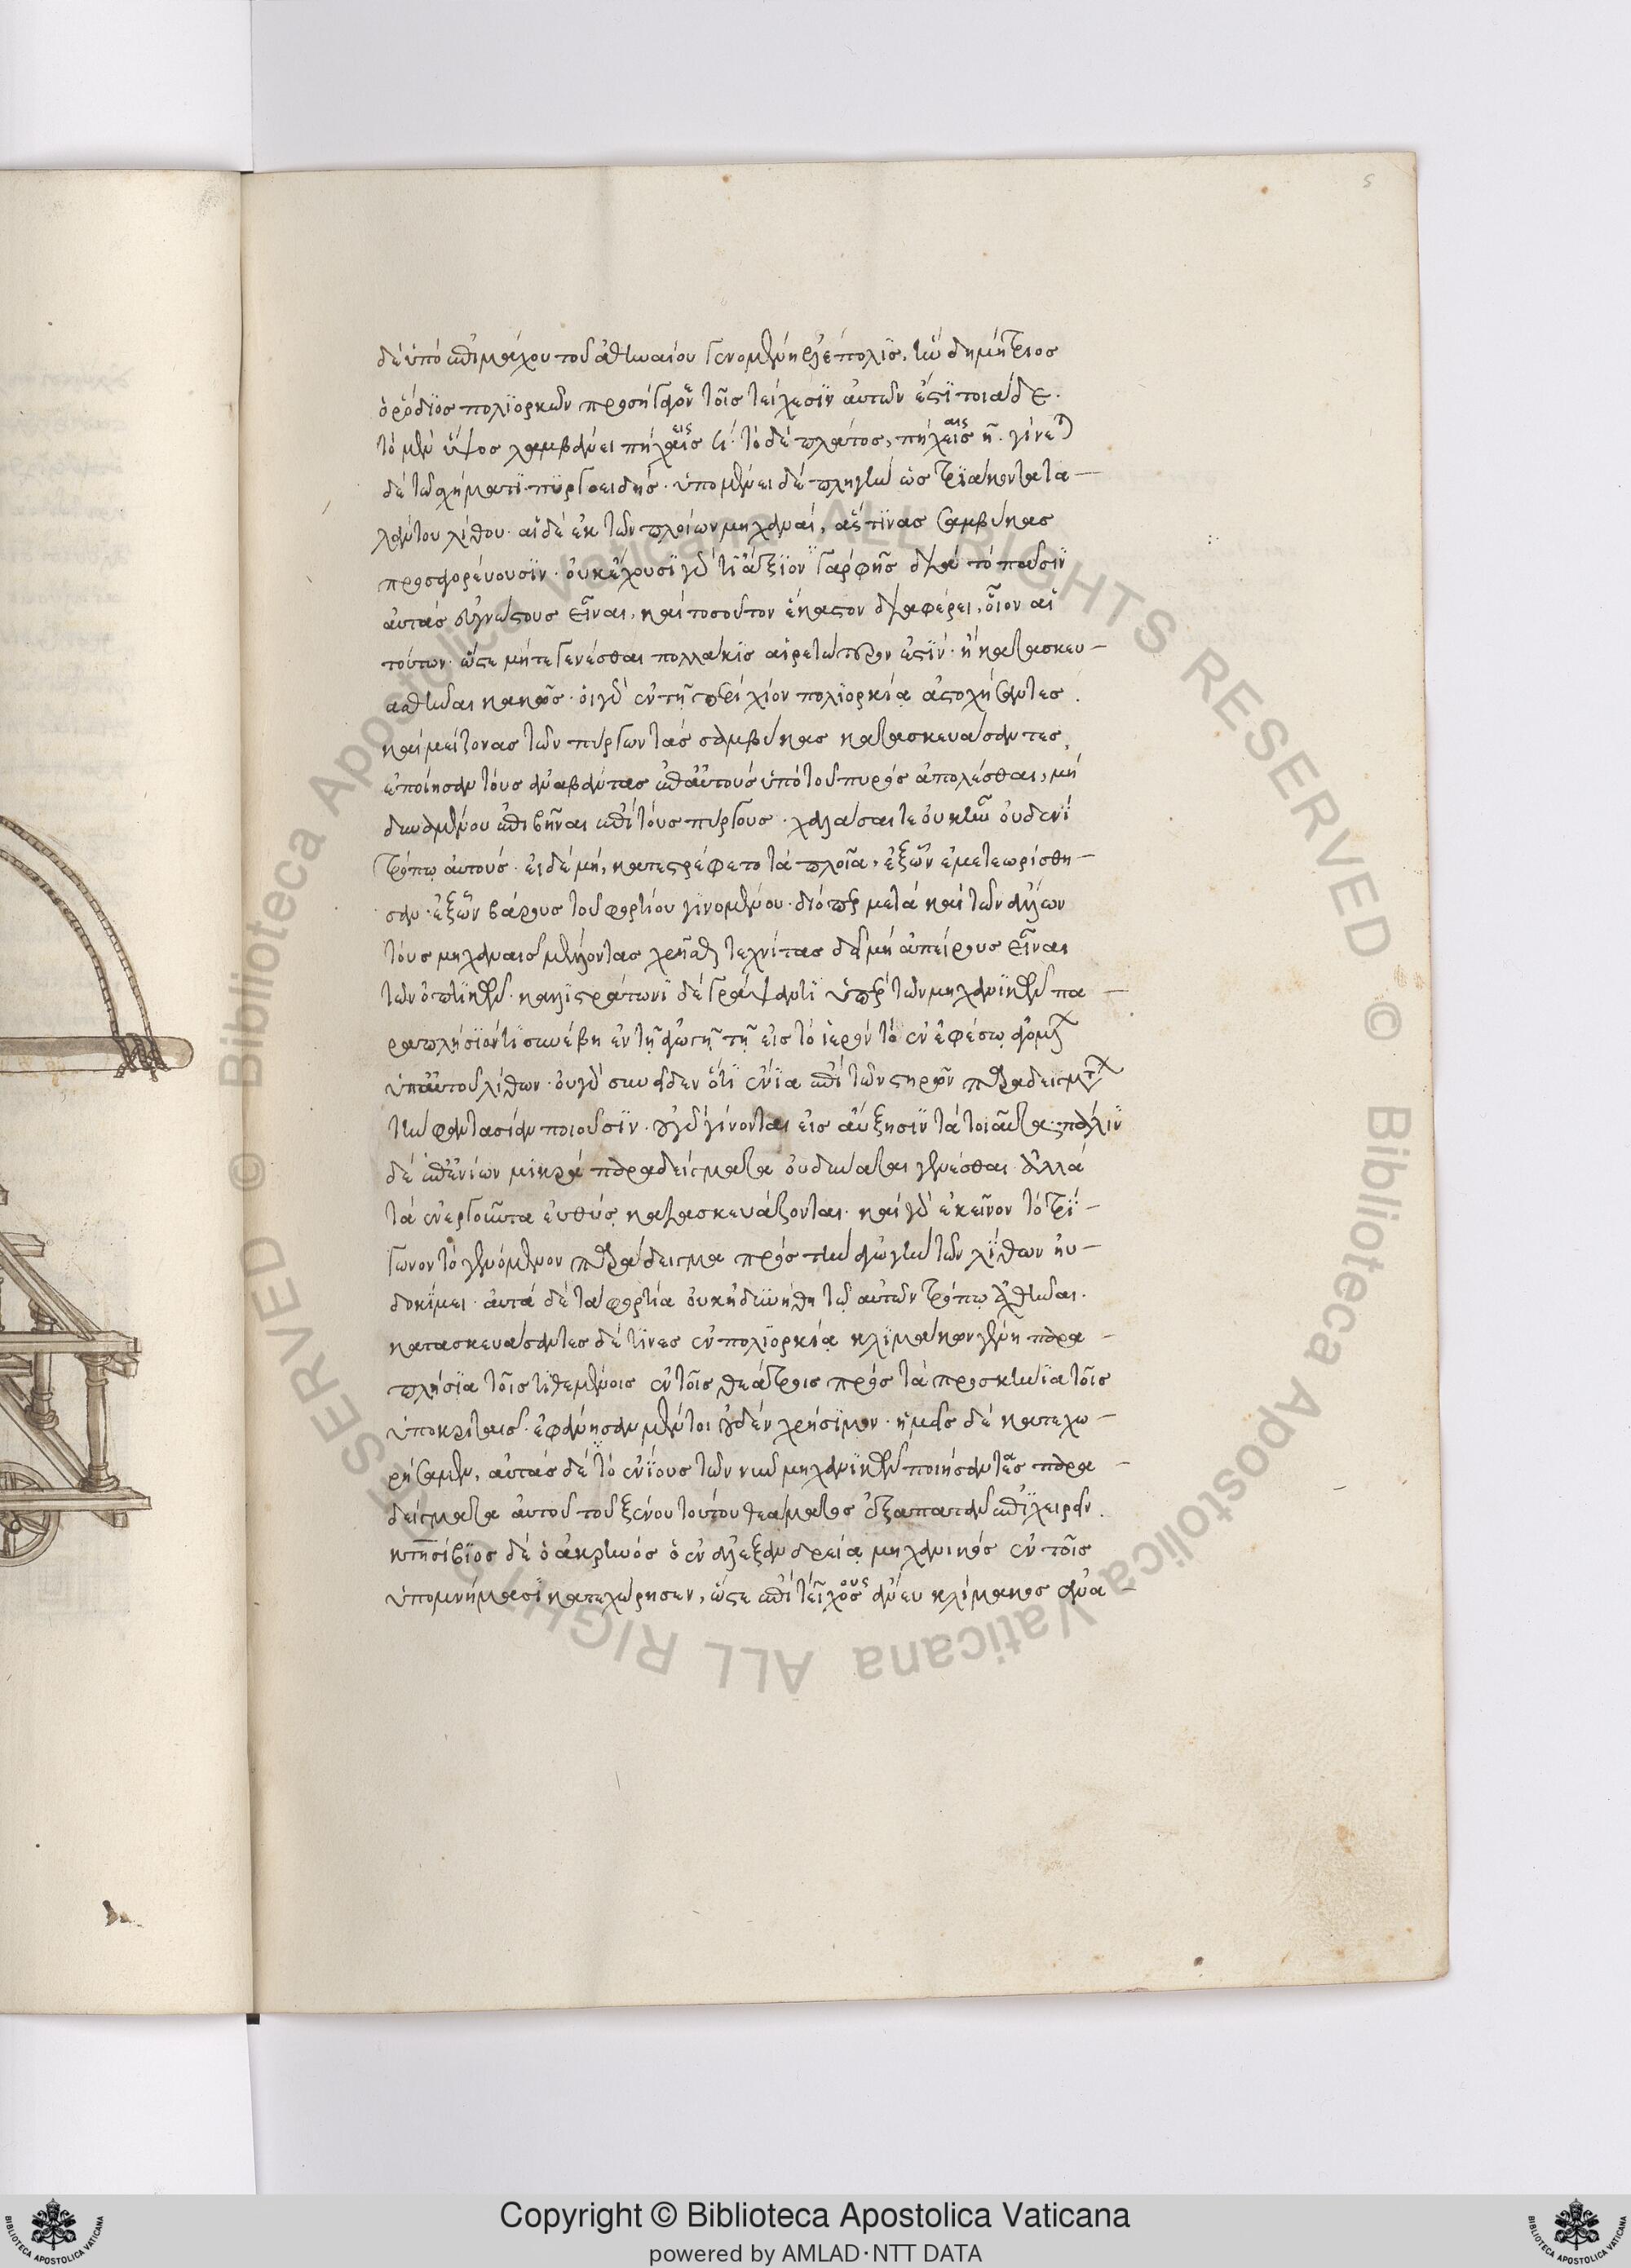 5
δὲ ὑπὸ ἐπιμάχου τοῦ ἀθηναίου γενομένη ἑλέπολις, ἣν δημήτριος
ὁ ῥόδιος πολιορκῶν προσήγαγεν τοῖς τείχεσιν αὐτῶν ἐστὶ τοιάδε.
τὸ μὲν ὕψος λαμβάνει πήχεις · τὸ δὲ πλάτος, πήχεις η̄. γίνεται
δὲ τῷ σχήματι πυργοειδής. ὑπομένει δὲ πληγὴν ὡς τριάκοντα τα–
λάντου λίθου. αἱ δὲ ἐκ τῶν πλοίων μηχαναί, ἅς τινας σαμβύκας
προσαγορεύουσιν. οὐκ ἔχουσι γὰρ τι ἄξιον γραφῆς διὰ τὸ πᾶσιν
αὐτὰς εὐγνώστους εἶναι, καὶ τοσοῦτον ἕκαστον διαφέρει, οἷον αἱ
τούτων. ὥστε μήτε γενέσθαι πολλάκις αἱρετώτερον ἐστίν. ἢ κατασκευ–
ασθῆναι κακῶς. οἱ γὰρ ἐν τῇ περὶ χίον πολιορκίᾳ ἀστοχήσαντες
καὶ μείζονας τῶν πύργων τὰς σαμβύκας κατασκευάσαντες,
ἐποίησαν τοὺς ἀναβάντας ἐπ' αὐτοὺς ὑπὸ τοῦ πυρὸς ἀπολέσθαι, μὴ
δυναμένου ἐπιβῆναι ἐπὶ τοὺς πύργους. χαλάσαι τε οὐκ ἦν οὐδενὶ
τρόπῳ αὐτούς. εἰ δὲ μή, κατεστρέφετο τὰ πλοῖα, ἐξ ὧν ἐμετεωρίσθη–
σαν. ἐξ ὧν βάρους τοῦ φορτίου γινομένου. διόπερ μετὰ καὶ τῶν ἄλλων
τοὺς μηχαναῖς μέλλοντας χρῆσθαι τεχνίτας δεῖ μὴ ἀπείρους εἶναι
τῶν ὀπτικῶν. καλλιστράτωνι δὲ γράψαντι ὑπὲρ τῶν μηχανικῶν πα–
ραπλήσιόν τι συνέβη ἐν τῇ ἀγωγῇ τῇ εἰς τὸ ἱερὸν τὸ ἐν ἐφέσῳ
ὑπ' αὐτοῦ λίθων. οὐ γὰρ συνεῖδεν ὅτι ἔνια ἐπὶ τῶν μικρῶν παραδειγμάτων
τὴν φαντασίαν ποιοῦσιν. οὐ γὰρ γίνονται εἰς αὔξησιν τὰ τοιαῦτα. πάλιν
δὲ ἐπ' ἐνίων μικρὰ παραδείγματα οὐ δύναται γενέσθαι ἀλλὰ
τὰ ἐνεργοῦντα εὐθὺς κατασκευάζονται. καὶ γὰρ ἐκεῖνον τὸ τρί–
γωνον τὸ γενόμενον παράδειγμα πρὸς τὴν ἀγωγὴν τῶν λίθων ηὐ–
δοκίμει. αὐτὰ δὲ τὰ φορτία οὐκ ἠδυνήθη τῷ αὐτῶν τρόπῳ ἀχθῆναι.
κατασκευάσαντες δέ τινες ἐν πολιορκίᾳ κλιμάκων γένη παρα–
πλήσια τοῖς τιθεμένοις ἐν τοῖς θεάτροις πρὸς τὰ προσκήνια τοῖς
ὑποκριταῖς. ἐφάνησαν μέντοι οὐδὲν χρήσιμον. ἡμεῖς δὲ κατεχω–
ρήσαμεν, αὐτὰς δὲ τὸ ἐνίους τῶν νῦν μηχανικῶν ποιήσαντας παρα–
δείγματα αὐτοῦ τοῦ ξένου τούτου θεάματος ἐξαπατᾶν ἐπιχειρεῖν.
κτησίβιος δὲ ὁ ἀσκρηνὸς ὁ ἐν ἀλεξανδρείᾳ μηχανικὸς ἐν τοῖς
ὑπομνήμασι κατεχώρησεν, ὥστε ἐπὶ τεῖχος ἄνευ κλίμακος ἀνα–
Copyright © Biblioteca Apostolica Vaticana
powered by AMLAD·NTT DATA